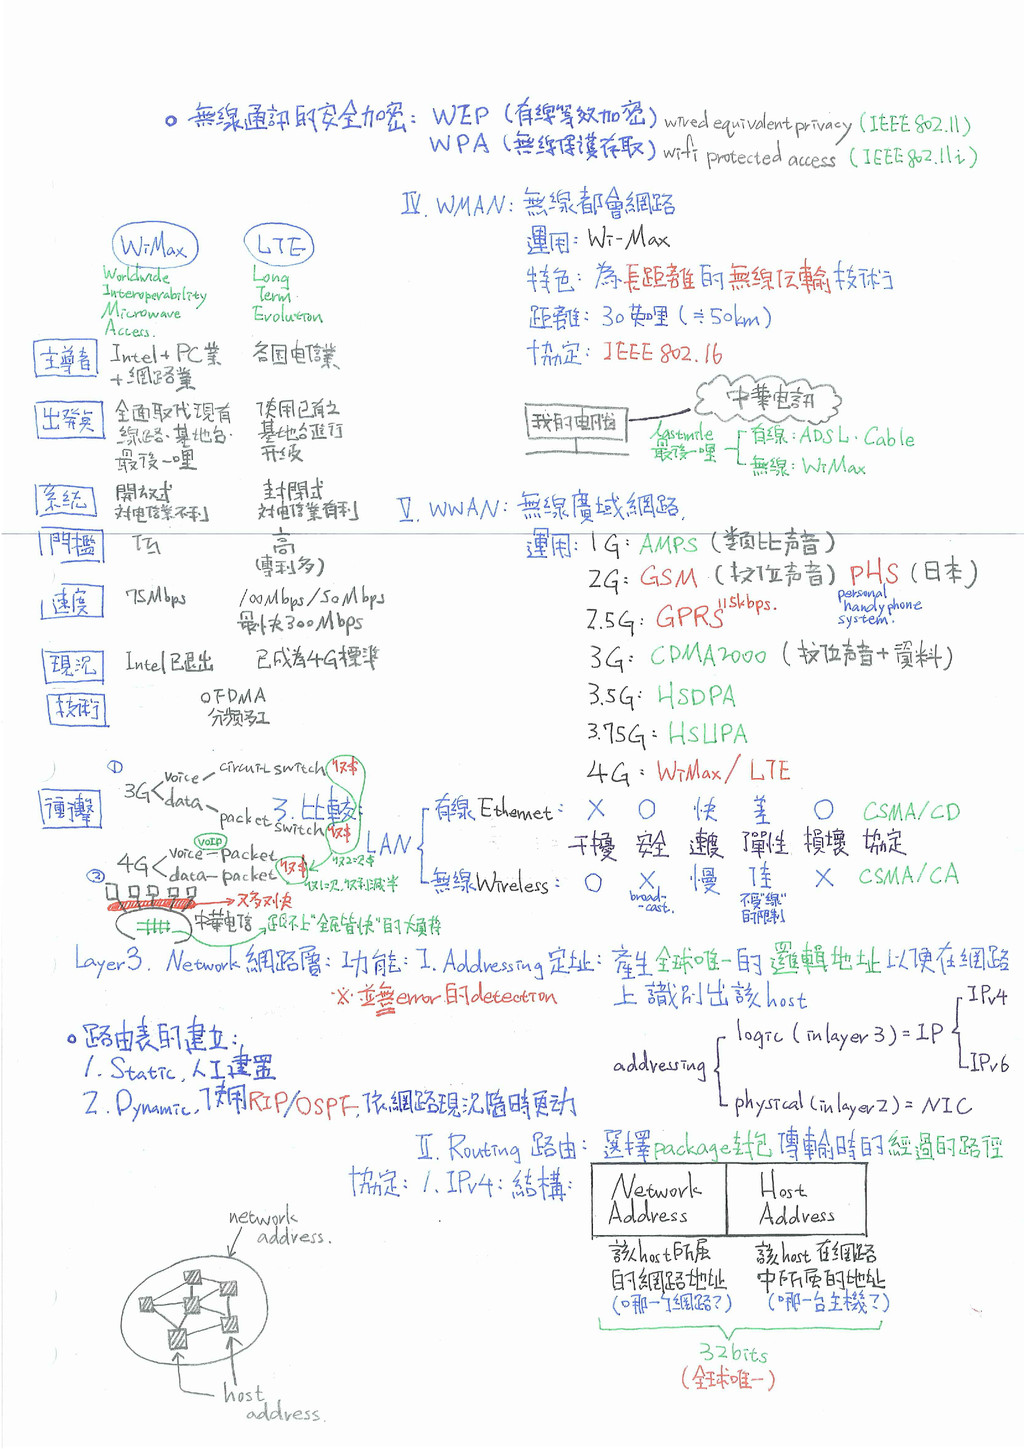 無線通訊的安全加密: WEP (有線等效加密) wired equivalent privacy (IEEE 802.11)
WPA (無線保護存取) wifi protected access (IEEE 802.11i)
IV. WMAN: 無線都會網路
運用: Wi-Max
特色: 為長距離的無線伝輸技術
距離: 30英哩 (≒50km)
協定: IEEE 802.16
我的电脑
中華电訊
lastmile
最後一哩
有線: ADSL. Cable
無線: WiMax
WiMax
LTE
Worldwide
Interoperability
Microwave
Access.
Long
Term
Evolution
主導者
Intel+PC業
+網路業
各国电信業
出発点
全面取代現有
線路.基地台.
最後一哩
使用已有之
基地台進行
升级
系統
開放式
対电信業不利
封閉式
対电信業有利
門檻
低
高
(專利多)
速度
75Mbps
100Mbps/50Mbps
最快300Mbps
現況
Intel已退出
已成為4G標準
技術
OFDMA
分頻多工
V. WWAN: 無線廣域網路.
運用: 1G: AMPS (類比声音)
2G: GSM (数位声音) PHS (日本)
personal
handyphone
system.
2.5G: GPRS 115kbps.
3G: CDMA2000 (数位声音+資料)
3.5G: HSDPA
3.75G: HSUPA
4G: WiMax/LTE
衝擊
①
3G
voice
circuit switch
収$
data
packet
switch
収$
4G
VoIP
voice-packet
data-packet
収$
収2=2$
収1=1次,収利減半
②
又多又快
中華电信
配不上"全民皆快"的大頻寬
3. 比較:
LAN
有線Ethernet: X O 快 差 O CSMA/CD
干擾 安全 速度 彈性 損壞 協定
無線Wireless: O X 慢 佳 X CSMA/CA
broad-
cast.
不受"線"
的限制
Layer3. Network網路層: 功能: I. Addressing定址: 產生全球唯一的邏輯地址以便在網路
上識別出該host
※並無error的detection
addressing
logic (in layer 3) = IP
IPv4
IPv6
physical (in layer 2) = NIC
路由表的建立:
1. Static, 人工建置
2. Dynamic, 使用RIP/OSPF, 依網路現況隨時更动
II. Routing 路由: 選擇package封包傳輸時的經過的路徑
協定: 1. IPv4: 結構:
Network
Address
Host
Address
該host所属
的網路地址
(哪一个網路?)
該host在網路
中所属的地址
(哪一台主機?)
32bits
(全球唯一)
network
address.
host
address.